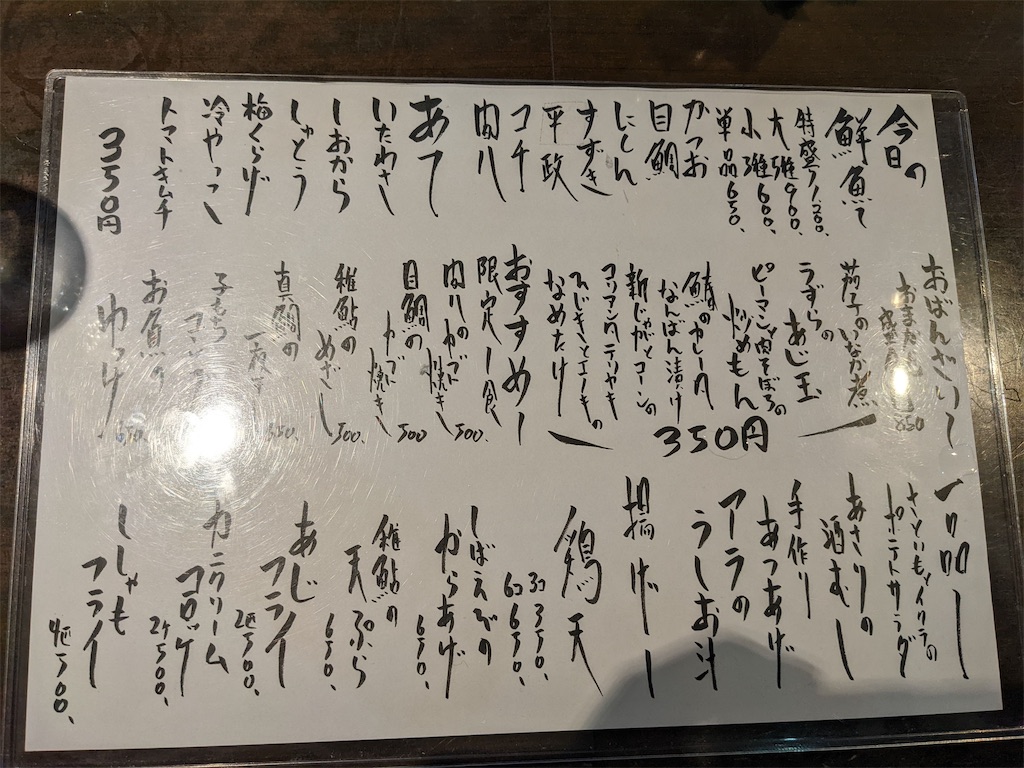 今日の
鮮魚て
特盛り1,200、
大雅900、
小雅600、
単品650、
かつお
目鯛
にしん
すずき
平政
コチ
間八
あて
いたわさ
しおから
しゅとう
梅くらげ
冷やっこ
トマトキムチ
350円
おばんざいー
おまかせ
盛
650
茄子のいなか煮
うずらの
あじ玉
ピーマンと肉そぼろの
炒めもん
鯖のカレー
なんばん漬け
新じゃがとコーンの
コリアンテリヤキ
ひじきとエノキの
なめたけ
350円
おすすめー
限定一食
間八の
かぶと
焼き
500、
目鯛の
かぶと
焼き
500
稚鮎の
めざし
500、
真鯛の
一夜干
550、
子もち
お魚の
ゆっけ
650、
一品ー
さといもとイクラの
ポテトサラダ
あさりの
酒むし
手作り
あつあげ
アラの
うしお汁
揚げー
鶏天
3コ350、
6コ650、
しばえびの
からあげ
650、
稚鮎の
天ぷら
650、
あじ
フライ
2匹500、
カニクリーム
コロッケ
2ケ500、
ししゃも
フライ
4匹500、